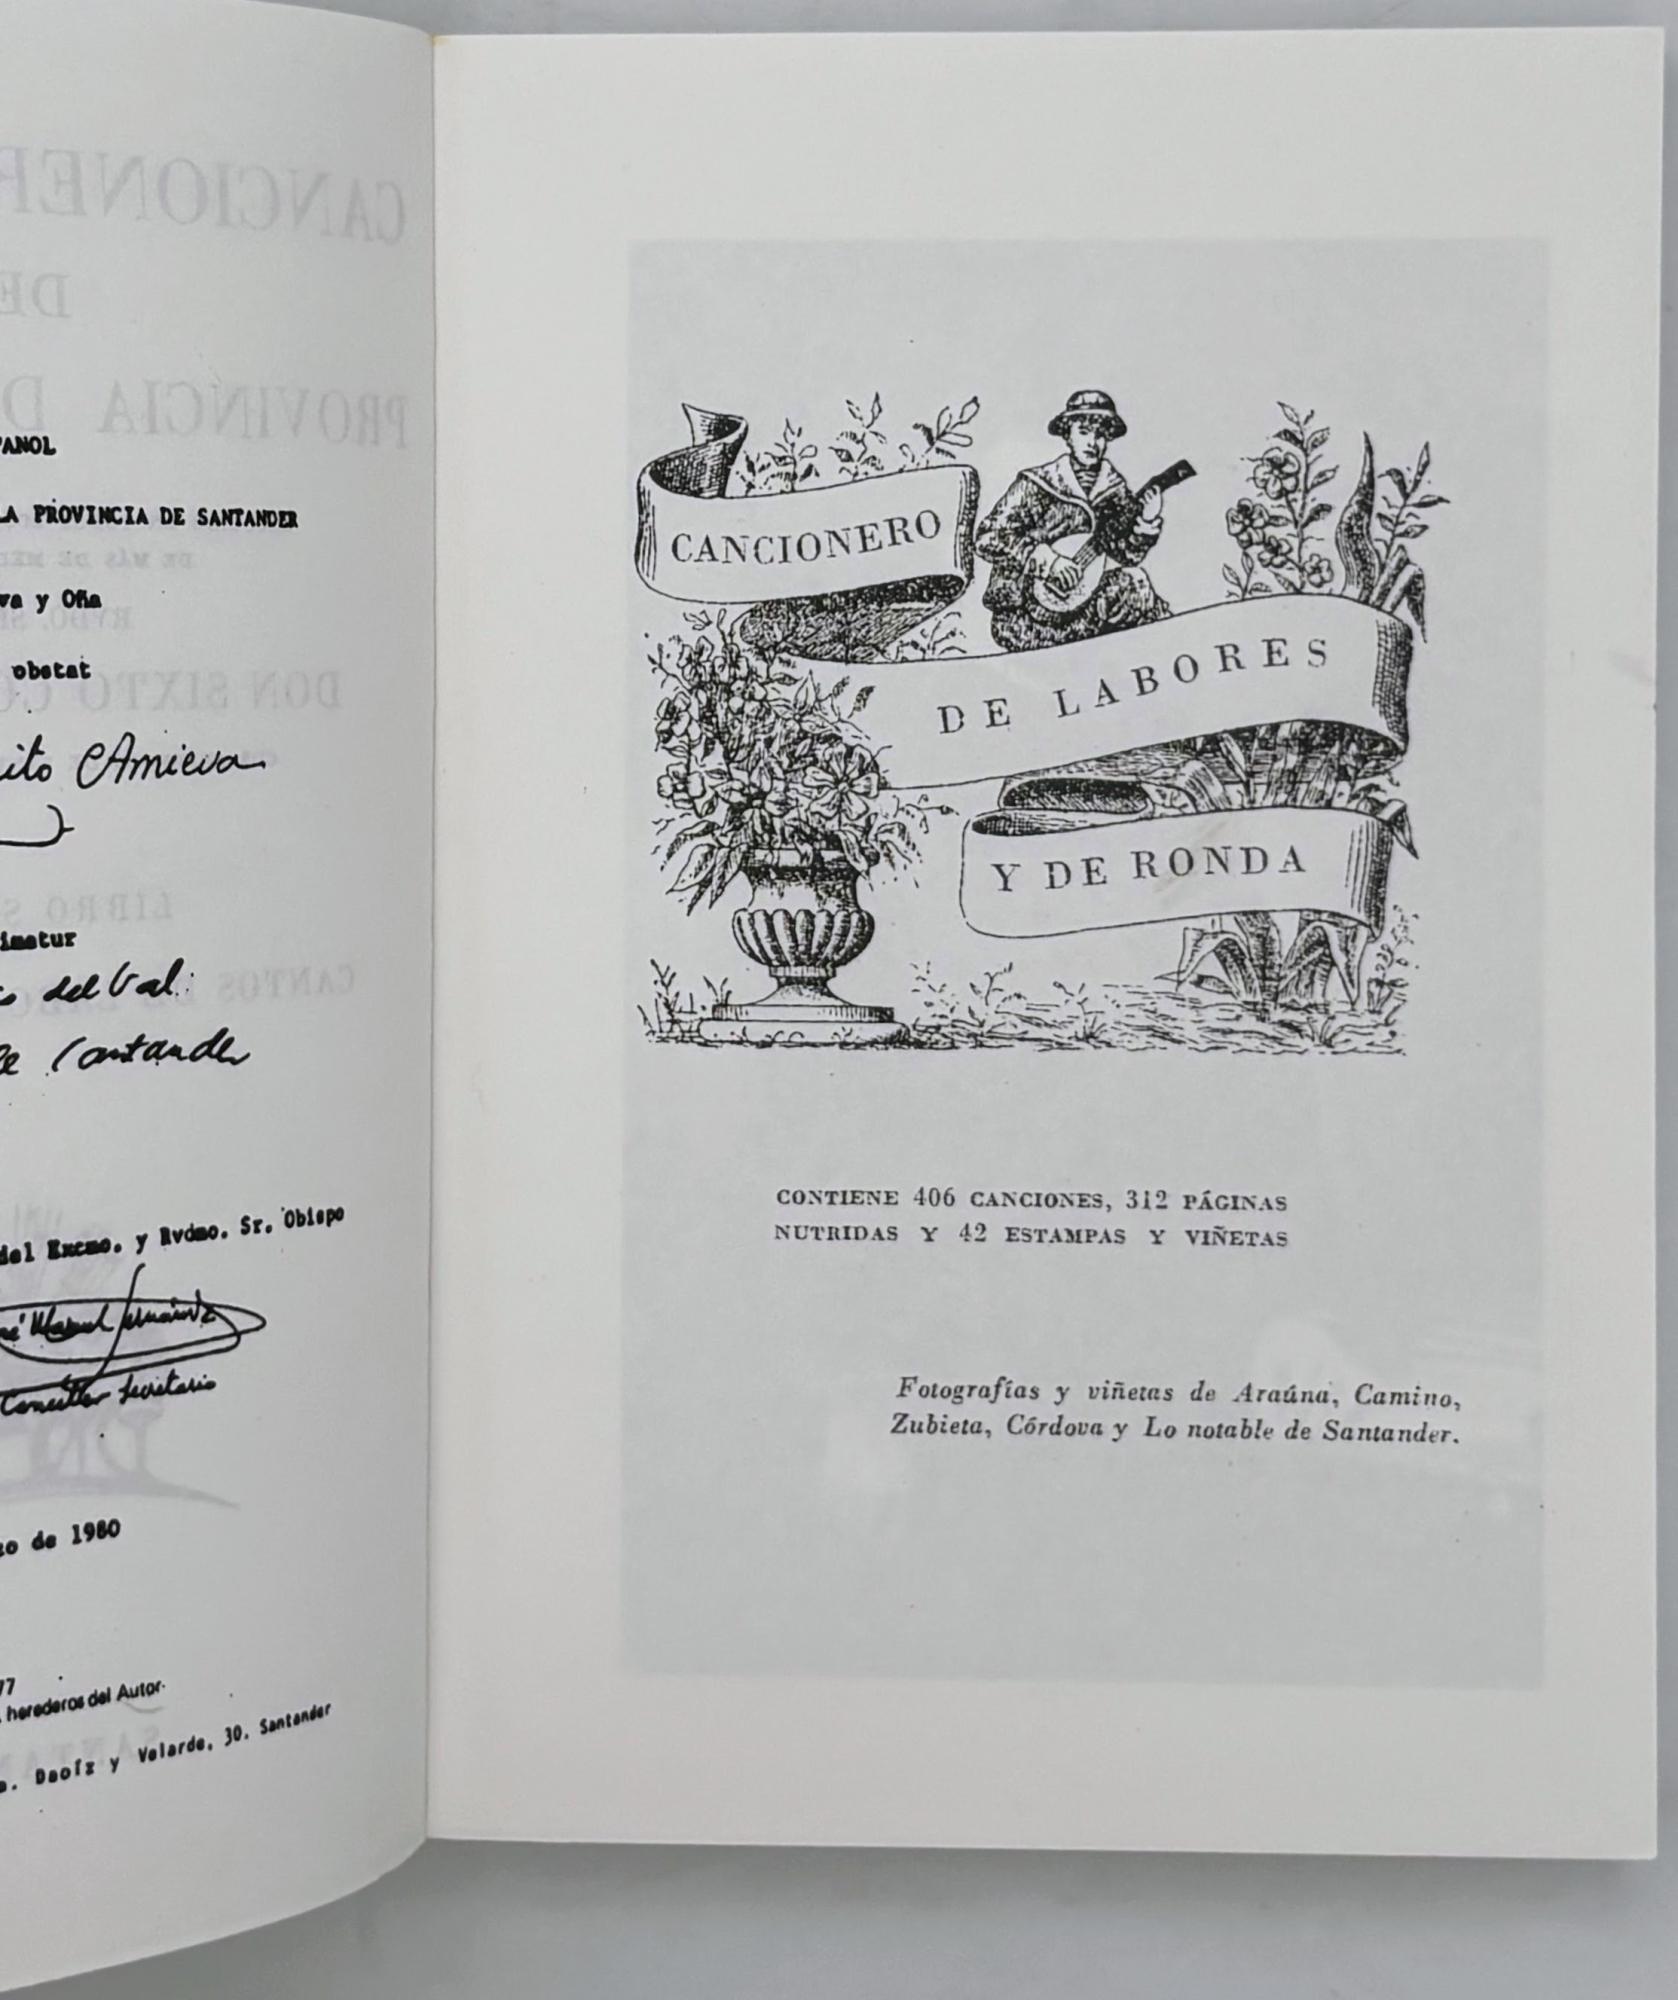 LA PROVINCIA DE SANTANDER
y Oña
obstat
Amieva
del Val
Santander
del Excmo. y Rvdmo. Sr. Obispo
José Manuel Fernández
Canciller Secretario
de 1980
77
herederos del Autor
Daoíz y Velarde, 30. Santander
CANCIONERO
DE LABORES
Y DE RONDA
CONTIENE 406 CANCIONES, 312 PÁGINAS
NUTRIDAS Y 42 ESTAMPAS Y VIÑETAS
Fotografías y viñetas de Araúna, Camino,
Zubieta, Córdova y Lo notable de Santander.